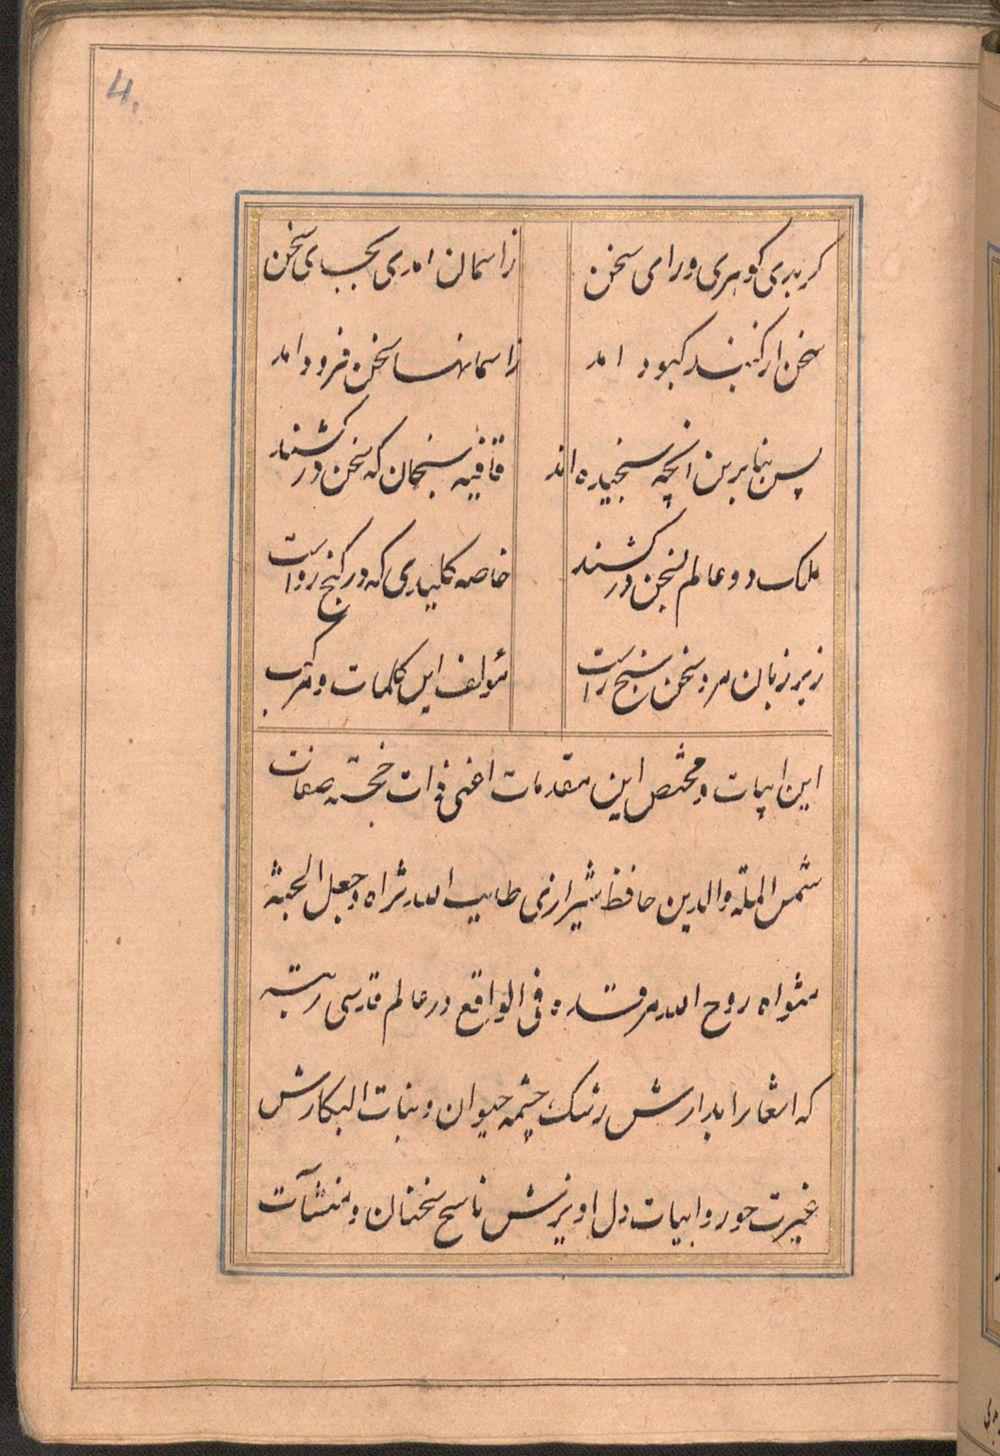 4.
کر بدی کوهری ورای سخن زاسمان امدی بجای سخن
سخن از کنبد کبود امد زاسمانها سخن فرود امد
پس بنابرین انچه سنجیده اند قافیه سنجان که سخن درکشند
ملک دو عالم بسخن درکشند خاصه کلیدی که در کنج راست
زیر زبان مرد سخن سنج راست مولف این کلمات و مرکب
این ابیات و مختص این مقدمات اعنی ذات خجسته صفات
شمس المله والدین حافظ شیرازی طایب الله ثراه و جعل الجنة
مثواه روح الله مرقده فی الواقع در عالم قدسی رتبه
که اشعار ابدارش رشک چشمه حیوان و بنات البکارش
غیرت حور و ابیات دل اویزش ناسخ سخنان و منشآت